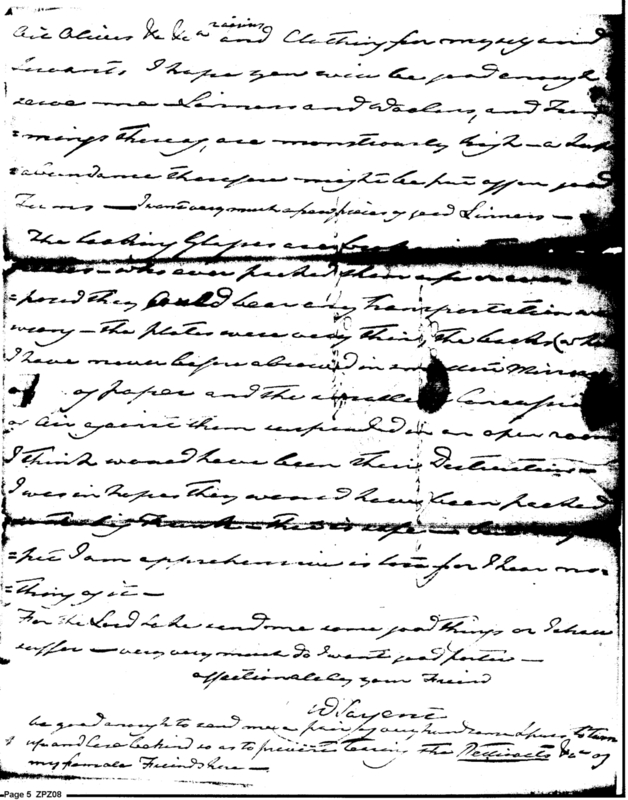 raisins
Oil Olives &c &ca and Clothing for myself and
Servants, I hope you will be good enough
me Linnens and Woolens, and
=mings thereof, are monstrously high — a
=abundance therefore might be put off on good
Terms — I want very much a few pieces of good Linnens —
The Looking Glasses are
who ever packed them
=posed they could bear any Transportation
wrong — the plates were very thin, the backs (
I have never before observed in
of paper and the
of Air against them suspended in an open room
I think would have been their Destruction —
I was in hopes they would have been packed
in the big Trunk — that is safe —
=pet I am apprehensive is lost for I hear no=
=thing of it —
For the Lord sake send me some good things or I shall
suffer — very very much do I want good porter —
affectionately your Friend
W Sargent
be good enough to send me a pair of very handsome Spurs to turn
up and close behind so as to prevent tearing the Petticoats &ca of
my female Friends here —
Page 5 ZPZ08